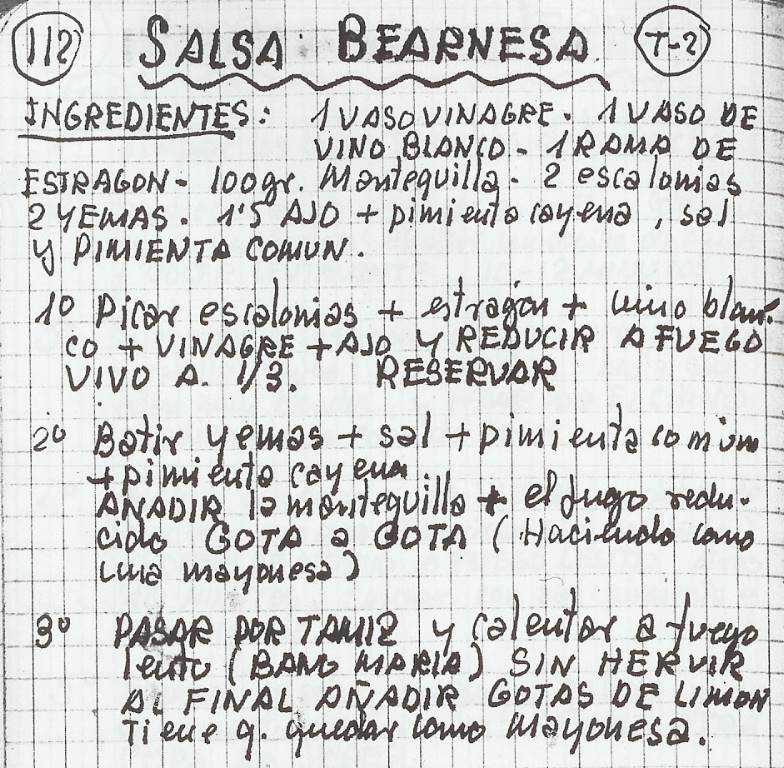 112 SALSA BEARNESA T-2
INGREDIENTES: 1 VASO VINAGRE - 1 VASO DE
VINO BLANCO - 1 RAMA DE
ESTRAGON - 100gr. Mantequilla - 2 escalonias
2 YEMAS - 1'5 AJO + pimienta cayena, sal
y PIMIENTA COMUN.
1º Picar escalonias + estragon + vino blan-
co + VINAGRE + AJO y REDUCIR A FUEGO
VIVO A 1/3. RESERVAR
2º Batir yemas + sal + pimienta comun
+ pimienta cayena
AÑADIR la mantequilla + el jugo redu-
cido GOTA a GOTA (Haciendo como
una mayonesa)
3º PASAR POR TAMIZ y calentar a fuego
lento (BAÑO MARIA) SIN HERVIR
AL FINAL AÑADIR GOTAS DE LIMON
Tiene q. quedar como mayonesa.